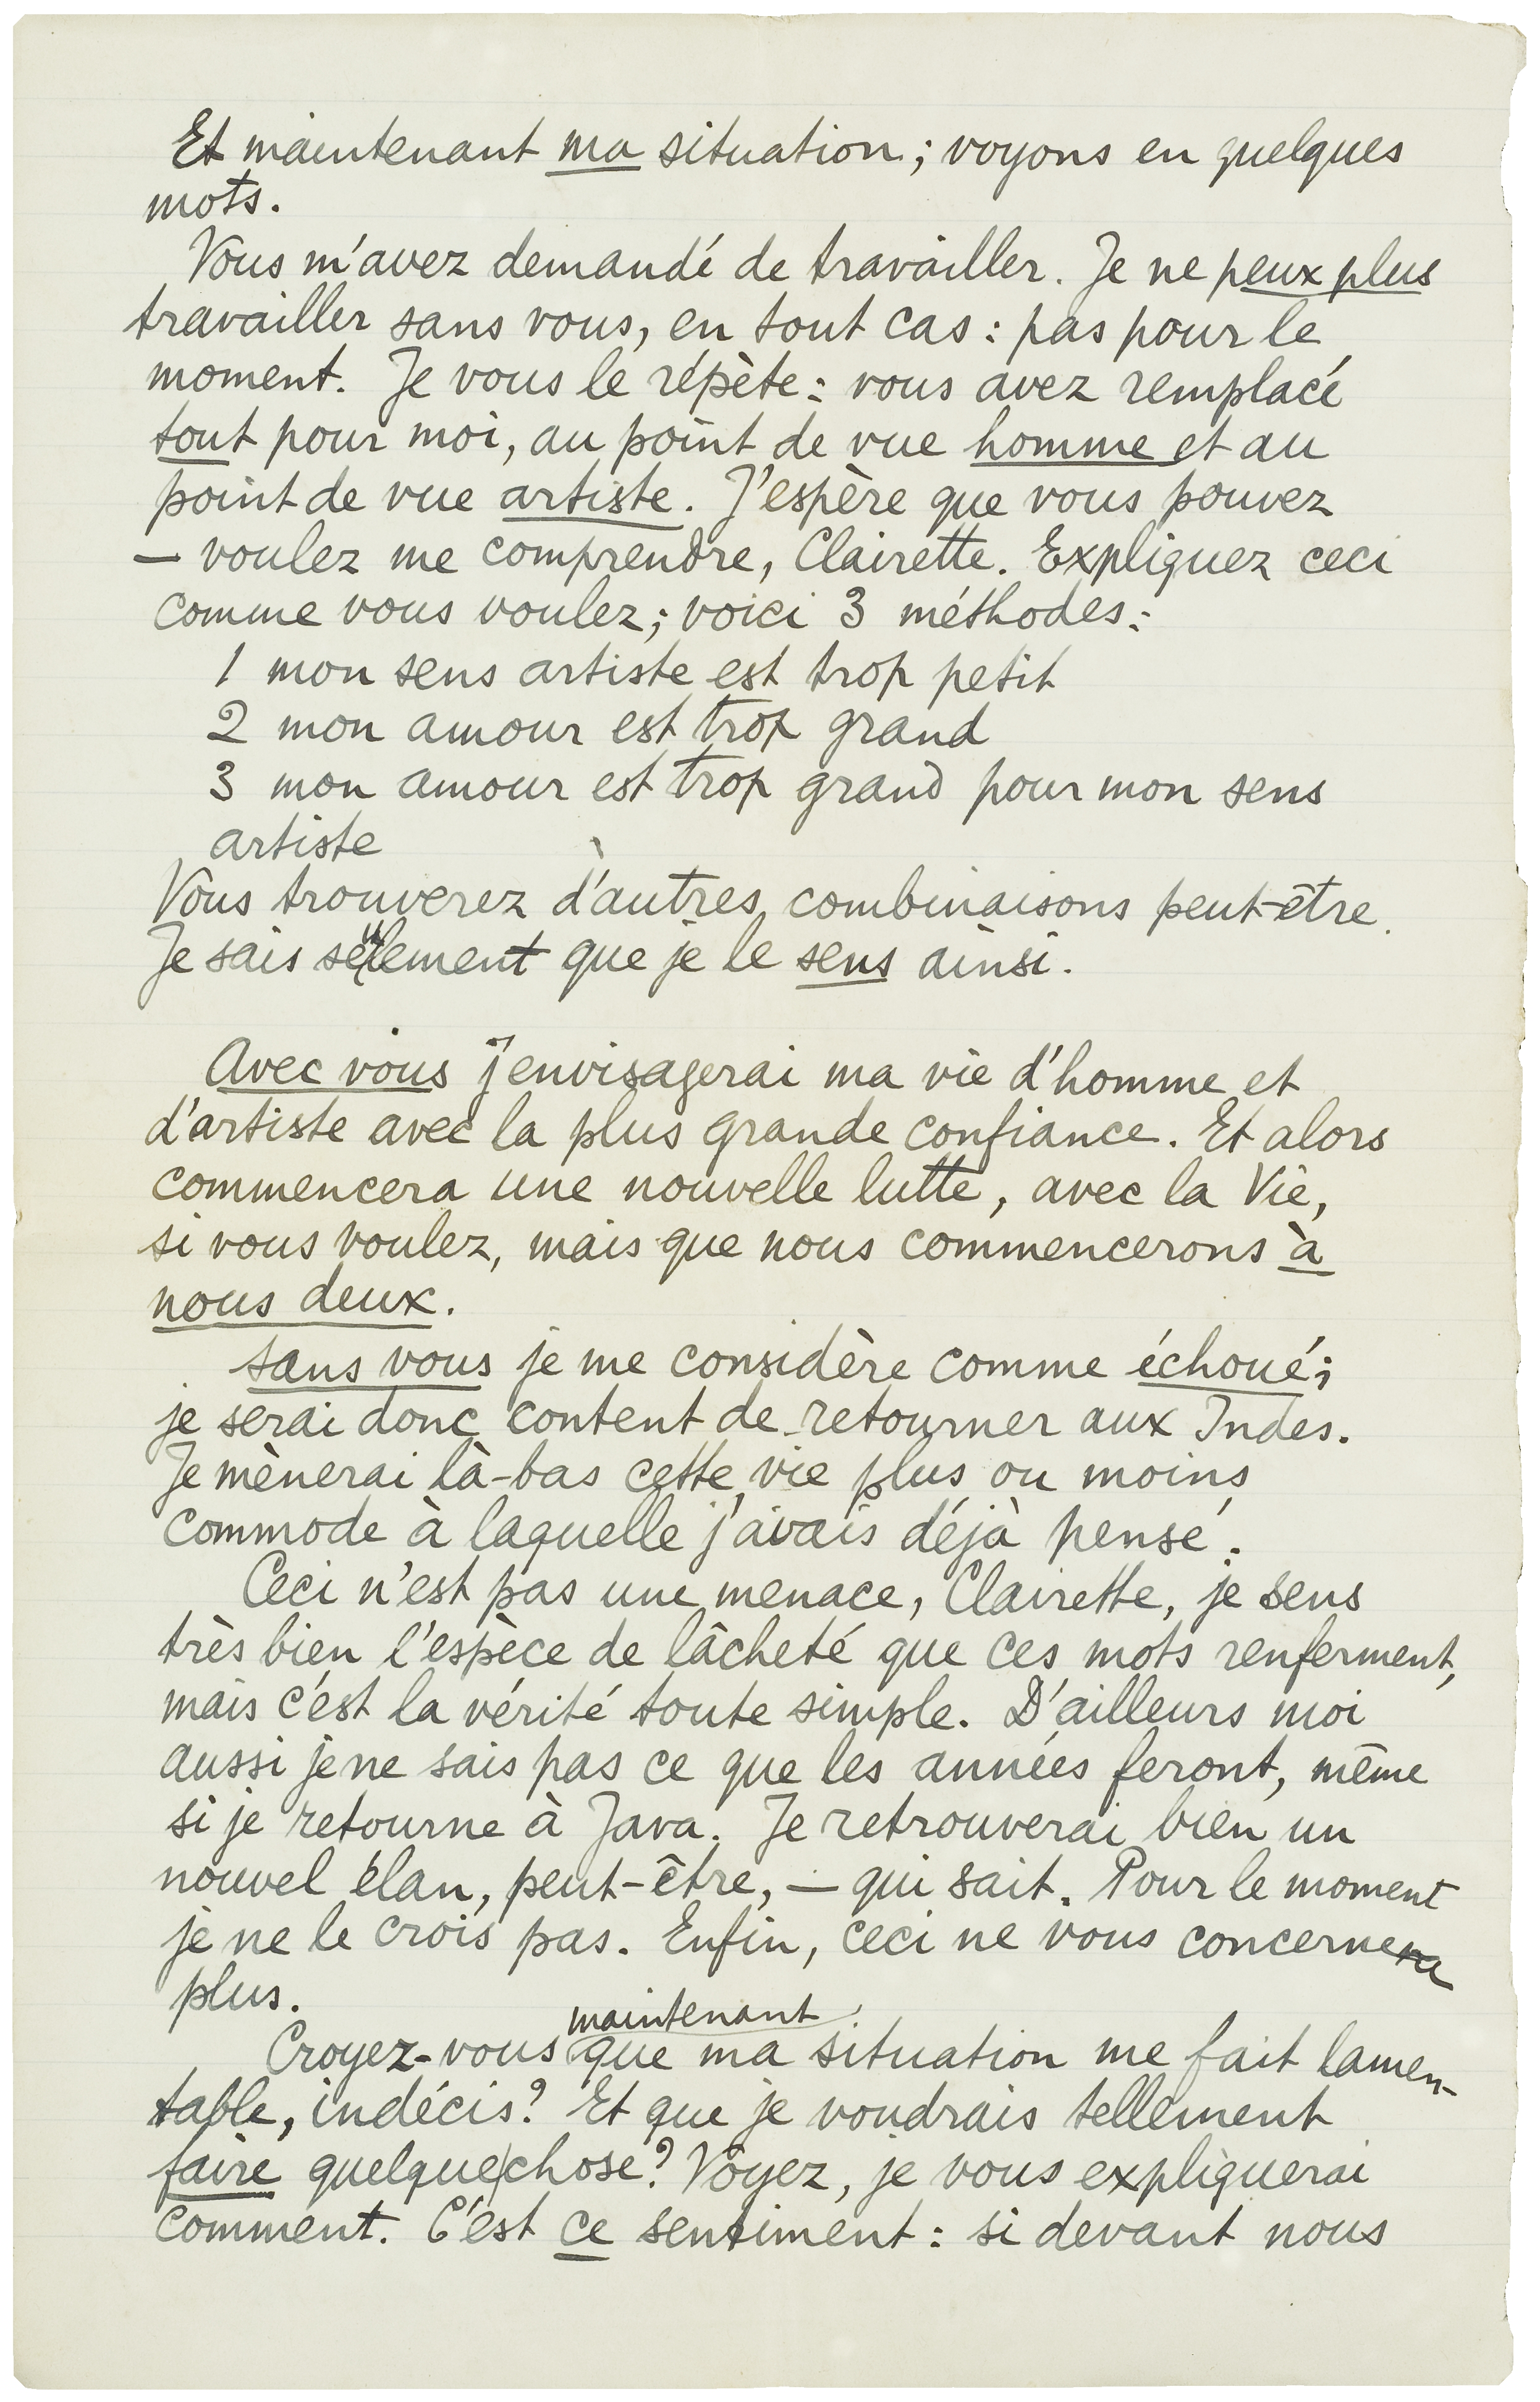 Et maintenant ma situation; voyons en quelques
mots.
Vous m'avez demandé de travailler. Je ne peux plus
travailler sans vous, en tout cas: pas pour le
moment. Je vous le répète: vous avez remplacé
tout pour moi, au point de vue homme et au
point de vue artiste. J'espère que vous pouvez
— voulez me comprendre, Clairette. Expliquez ceci
comme vous voulez; voici 3 méthodes:
1 mon sens artiste est trop petit
2 mon amour est trop grand
3 mon amour est trop grand pour mon sens
artiste
Vous trouverez d'autres combinaisons peut-être.
Je sais seulement que je le sens ainsi.
Avec vous j'envisagerai ma vie d'homme et
d'artiste avec la plus grande confiance. Et alors
commencera une nouvelle lutte, avec la Vie,
si vous voulez, mais que nous commencerons à
nous deux.
Sans vous je me considère comme échoué;
je serai donc content de retourner aux Indes.
Je mènerai là-bas cette vie plus ou moins
commode à laquelle j'avais déjà pensé.
Ceci n'est pas une menace, Clairette, je sens
très bien l'espèce de lâcheté que ces mots renferment,
mais c'est la vérité toute simple. D'ailleurs moi
aussi je ne sais pas ce que les années feront, même
si je retourne à Java. Je retrouverai bien un
nouvel élan, peut-être, — qui sait. Pour le moment
je ne le crois pas. Enfin, ceci ne vous concerne
plus.
maintenant
Croyez-vous que ma situation me fait lamen-
table, indécis? Et que je voudrais tellement
faire quelque chose? Voyez, je vous expliquerai
comment. C'est ce sentiment: si devant nous